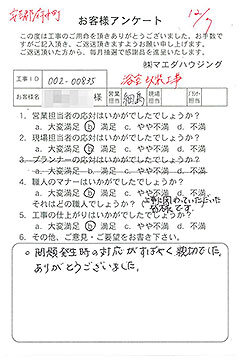 安芸郡府中町
12/7
お客様アンケート
この度は工事のご用命を頂きありがとうございました。お手数で
すがご記入頂き、ご返送頂きますようお願い申し上げます。
ご返送頂いた方から、毎月抽選で感謝品を進呈いたします。
㈱マエダハウジング
工事ID 002-00835 浴室改装工事
お客様名 様 営業担当 細馬 現場担当 プランナー担当
1. 営業担当者の応対はいかがでしたでしょうか?
a. 大変満足 b 満足 c. やや不満 d. 不満
2. 現場担当者の応対はいかがでしたでしょうか?
a. 大変満足 b 満足 c. やや不満 d. 不満
3. プランナーの応対はいかがでしたでしょうか?
a. 大変満足 b. 満足 c. やや不満 d. 不満
4. 職人のマナーはいかがでしたでしょうか?
a. 大変満足 b 満足 c. やや不満 d. 不満
それはどの職人でしょうか? 工事に関わっていただいた
皆様です。
5. 工事の仕上がりはいかがでしたでしょうか?
a. 大変満足 b 満足 c. やや不満 d. 不満
6. その他、ご意見・ご要望をお書き下さい。
○ 問題発生時の対応がすばやく親切でした。
ありがとうございました。